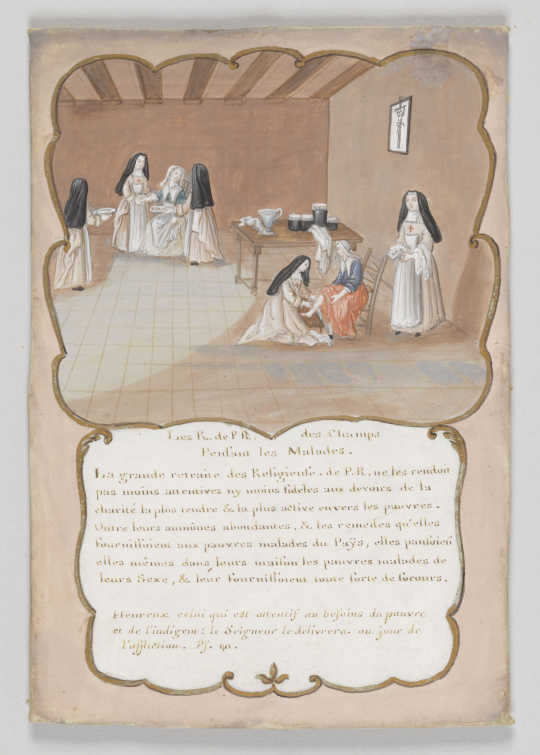 Les R. de P.R. des Champs
Pensant les Malades.
La grande retraite des Religieuse. de P.R. ne les rendoit
pas moins attentives ny moins fideles aux devoirs de la
charité la plus tendre & la plus active envers les pauvres.
Outre leurs aumônes abondantes, & les remedes qu'elles
fournissoient aux pauvres malades du Païs, elles pansoient
elles mêmes dans leurs maison les pauvres malades de
leurs Sexe, & leur fournissoient toute sorte de secours.
Heureux celui qui est attentif au besoins du pauvre
et de l'indigent: le Seigneur le délivrera au jour de
l'affliction. Ps.